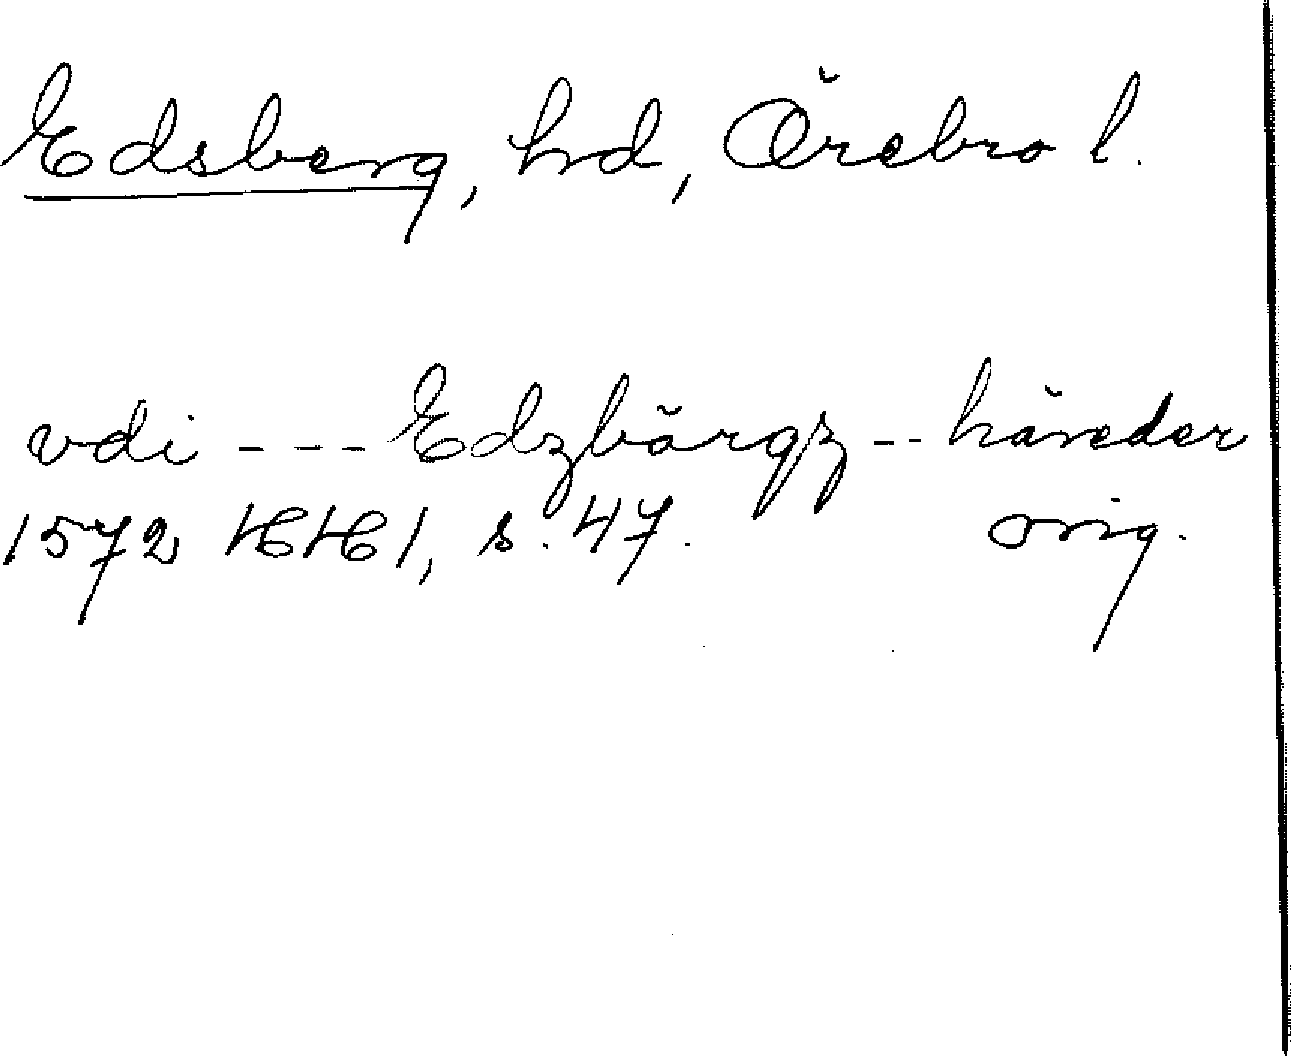 Edsberg, hd, Örebro l.
vdi --- Edzbärgz -- häreder
1572 HH 1, s. 47. orig.